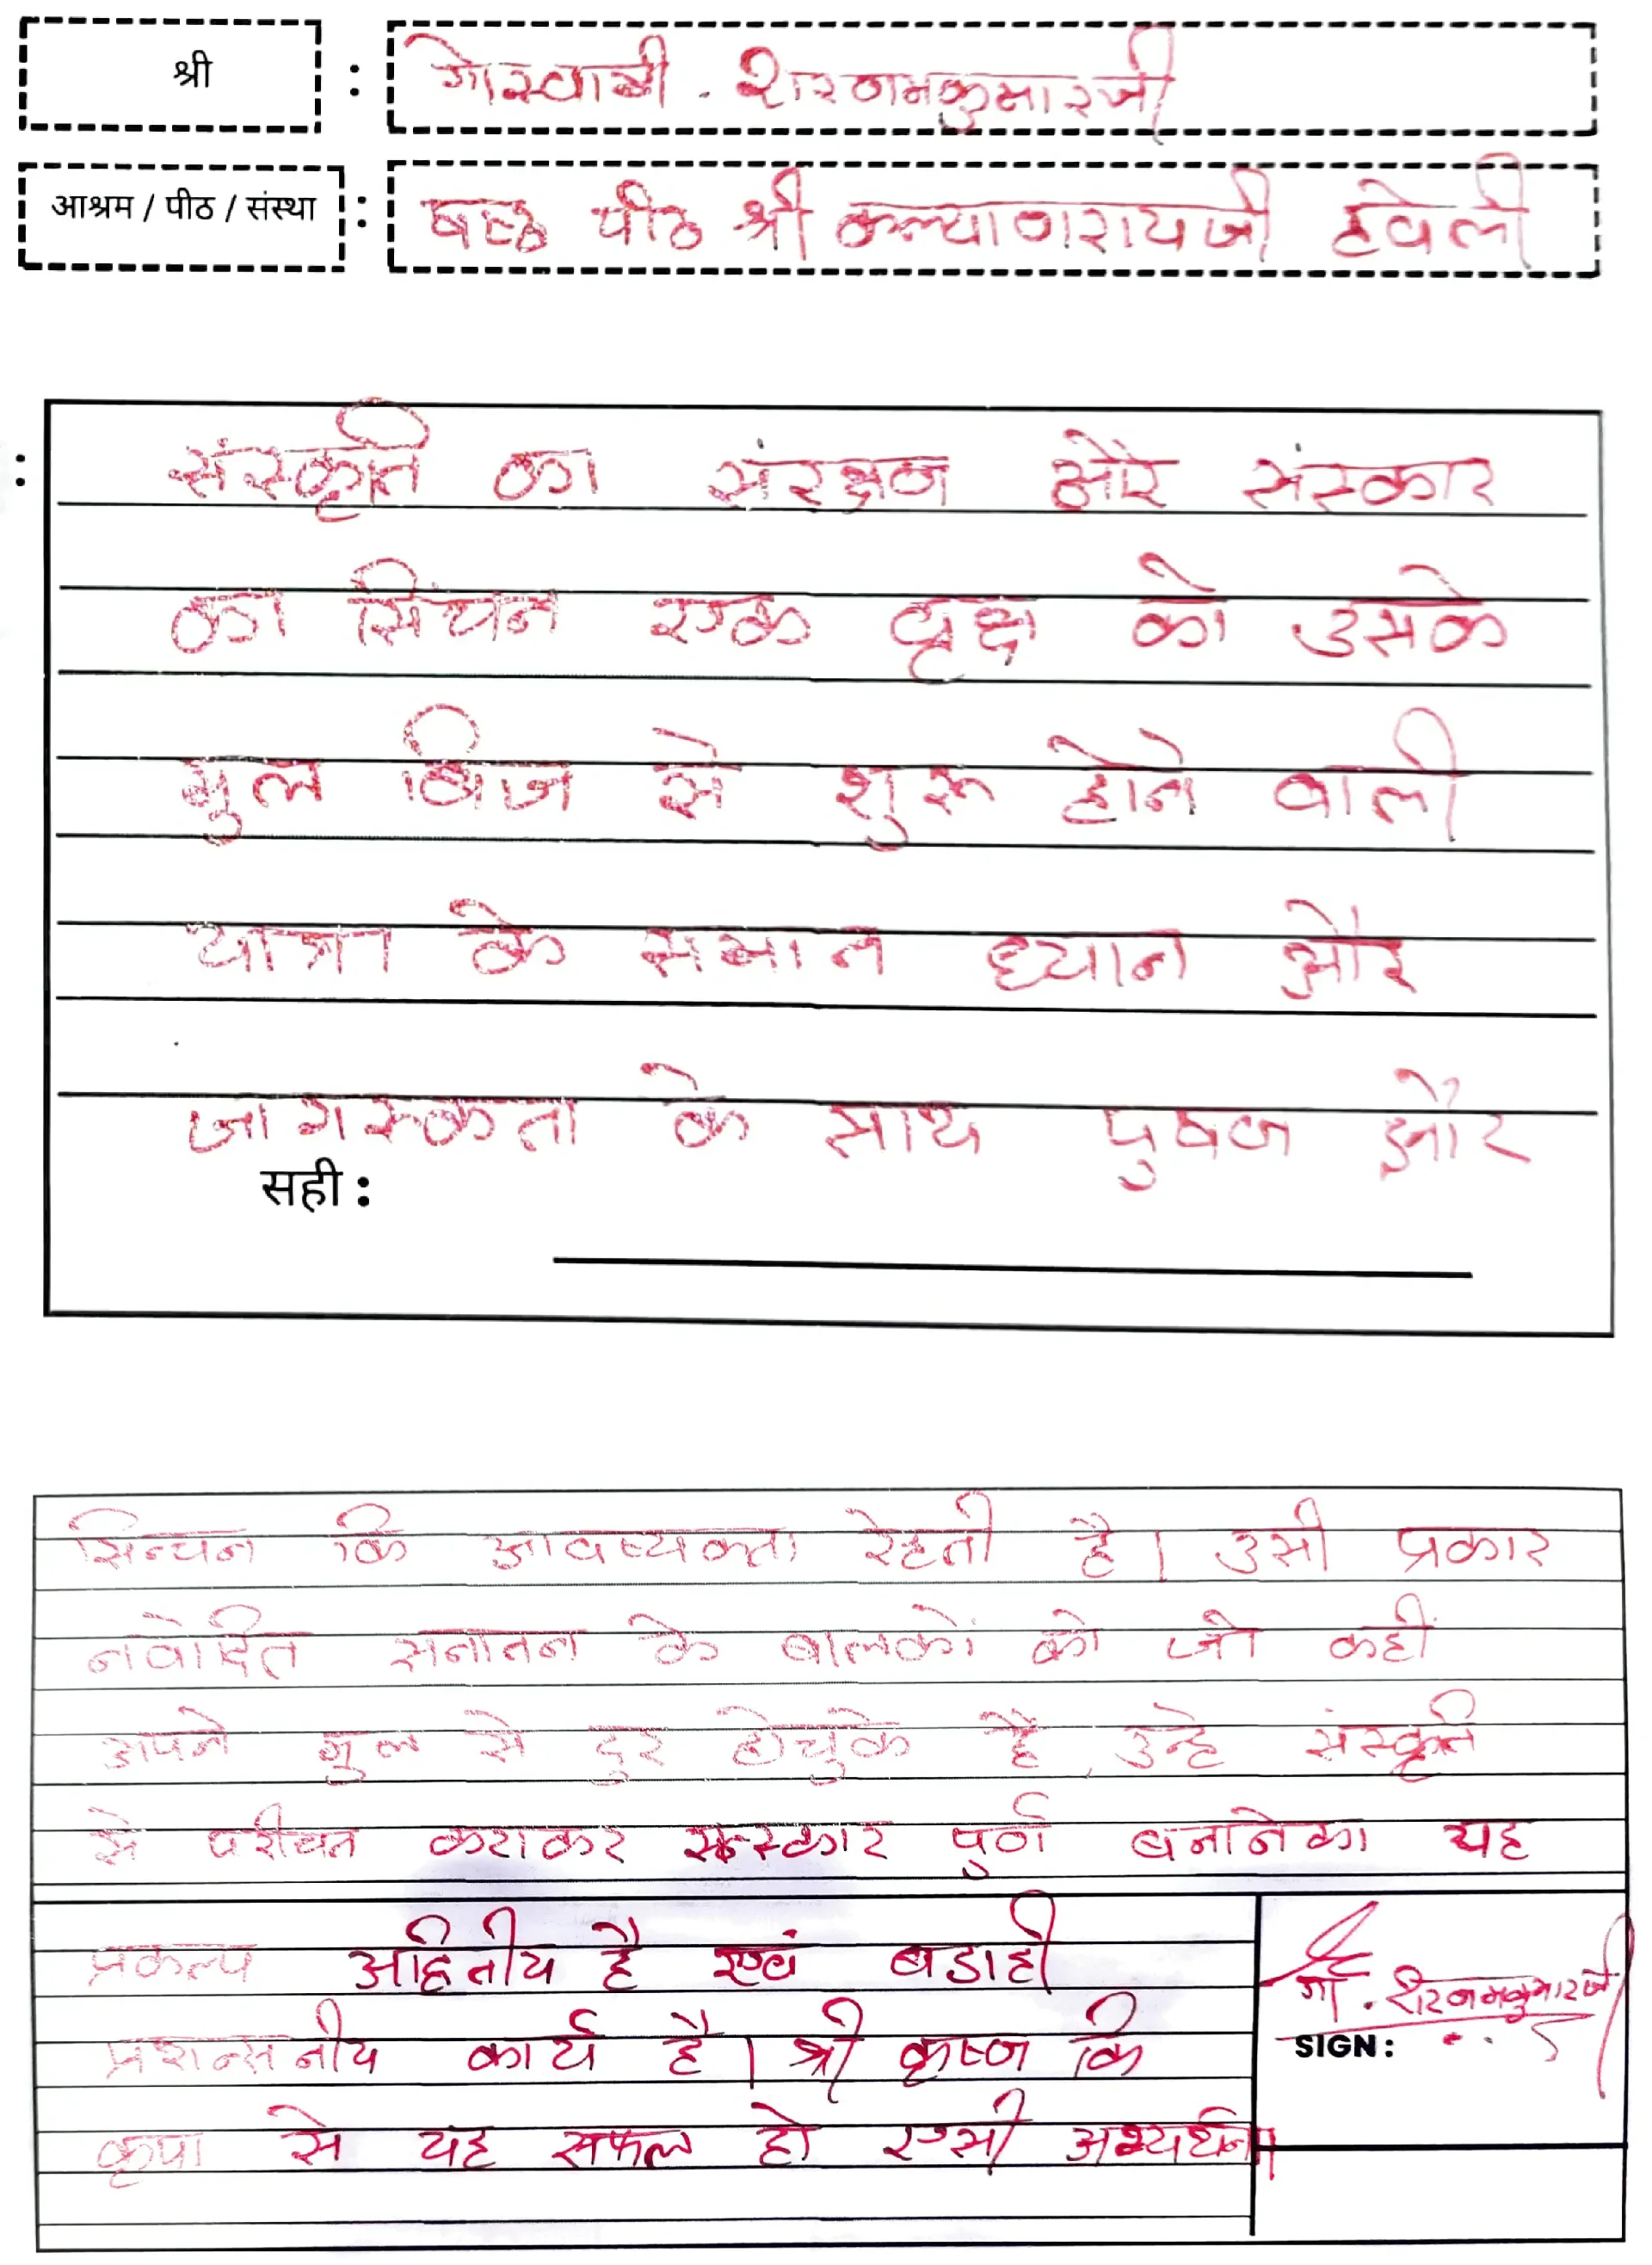 श्री : गोस्वामी . शरणमकुमारजी
आश्रम / पीठ / संस्था : षष्ठ पीठ श्री कल्याणरायजी हवेली
: संस्कृति का संरक्षण और संस्कार
का सिंचन एक वृक्ष को उसके
मुल बिज से शुरू होने वाली
यात्रा के समान ध्यान और
जागरूकता के साथ पुषण और
सही :
सिन्चन कि आवष्यक्ता रेहती है । उसी प्रकार
नवोदित सनातन के बालकों को जो कही
अपने मुल से दुर होचुके है, उन्हे संस्कृति
से परीचित कराकर संस्कार पुर्ण बनानेका यह
प्रकल्प अद्वितीय है एवं बडाही
प्रशन्सनीय कार्य है । श्री कृष्ण कि
कृपा से यह सफल हो एसी अभ्यर्थना
गो . शरणमकुमारजी
SIGN :